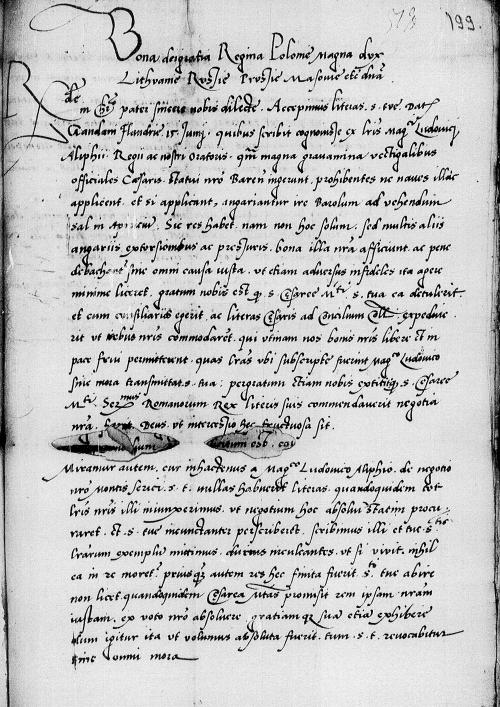 199.
Bona dei gratia Regina Polonie Magna dux
Lithvanie Rvssie Prvssie Masovie etc dna
in patri sincere nobis dilecte. Accepimus literas. s. tve Dat
Gandam Flandrie 15 Junij, quibus scribit cognovisse ex lris Mag Ludovici
Aliphii. Regii ac nostri Oratoris. qm magna gravamina vectigalibus
officiales Cesaris. statui nro Baren ingerunt. prohibentes ne naves illuc
applicent. et si applicant, angariantur ire Barolum ad vehendum
sal in Apuliam. Sic res habet. nam non hoc solum. sed multis aliis
angariis extorsionibus ac pressuris. bona illa nra afficiunt. ac pene
debachent sine omni causa iusta. ut etiam adversus infideles ita agere
minime liceret. gratum nobis est q. s. Cesaree Mti s. tua ea detulerit
et cum consiliariis egerit. ac literas Cesaris ad Consilium expedive
rit ut rebus nris commodaret. qui utinam nos bonis nris libere et in
pace frui permitterent. quas lras ubi subscripte fuerint Mag Ludovico
sine mora transmittet s. tua: pergratum etiam nobis s. Cesaree
Mti. Ser Romanorum Rex literis suis commendaverit negotia
nra. Deus. ut intercessio hec fructuosa sit.
Miramur autem. cur in hactenus a Mag Ludovico Aliphio. de negotio
nro Montis Serici. s. t. nullas habuerit literas. quandoquidem tot
lris nris illi iniunxerimus. ut negotium hoc absolui statim procu
raret. et s. tue incunctanter perscriberet. scribimus illi et tue s
lrarum exemplum mittimus. inculcantes. ut si vivit. nihil
ea in re moret. prius autem res hec finita fuerit. s. tue abire
non licet. quandoquidem Cesarea Mtas promisit rem ipsam nram
iustam. ex voto nro absolvere. gratiamque suam etiam exhibere
dum igitur ita ut volumus absoluta fuerit. tum. s. t. revocabitur
sine omni mora